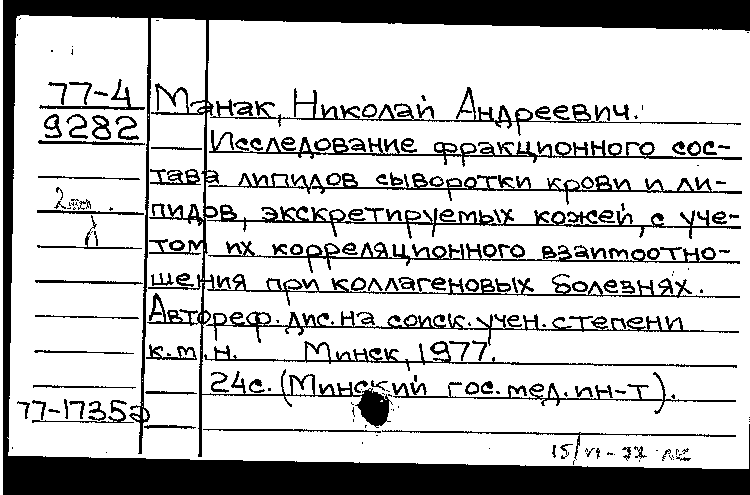 77-4 Манак, Николай Андреевич.
9282 Исследование фракционного сос-
тава липидов сыворотки крови и ли-
пидов, экскретируемых кожей, с уче-
том их корреляционного взаимоотно-
шения при коллагеновых болезнях.
Автореф. дис. на соиск. учен. степени
к.м.н. Минск, 1977.
24с. (Минский гос. мед. ин-т).
77-17352
15/VI-77